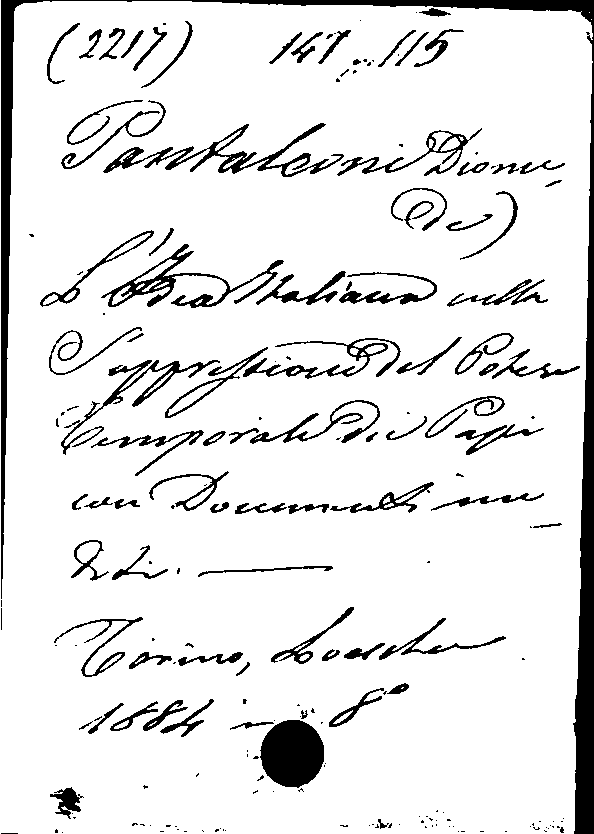 (2217) 147 115
Pantaleoni Diome-
de)
L'Idea Italiana nella
Soppressione del Potere
Temporale dei Papi
con Documenti ine-
diti. —
Torino, Loescher
1884 in 8°